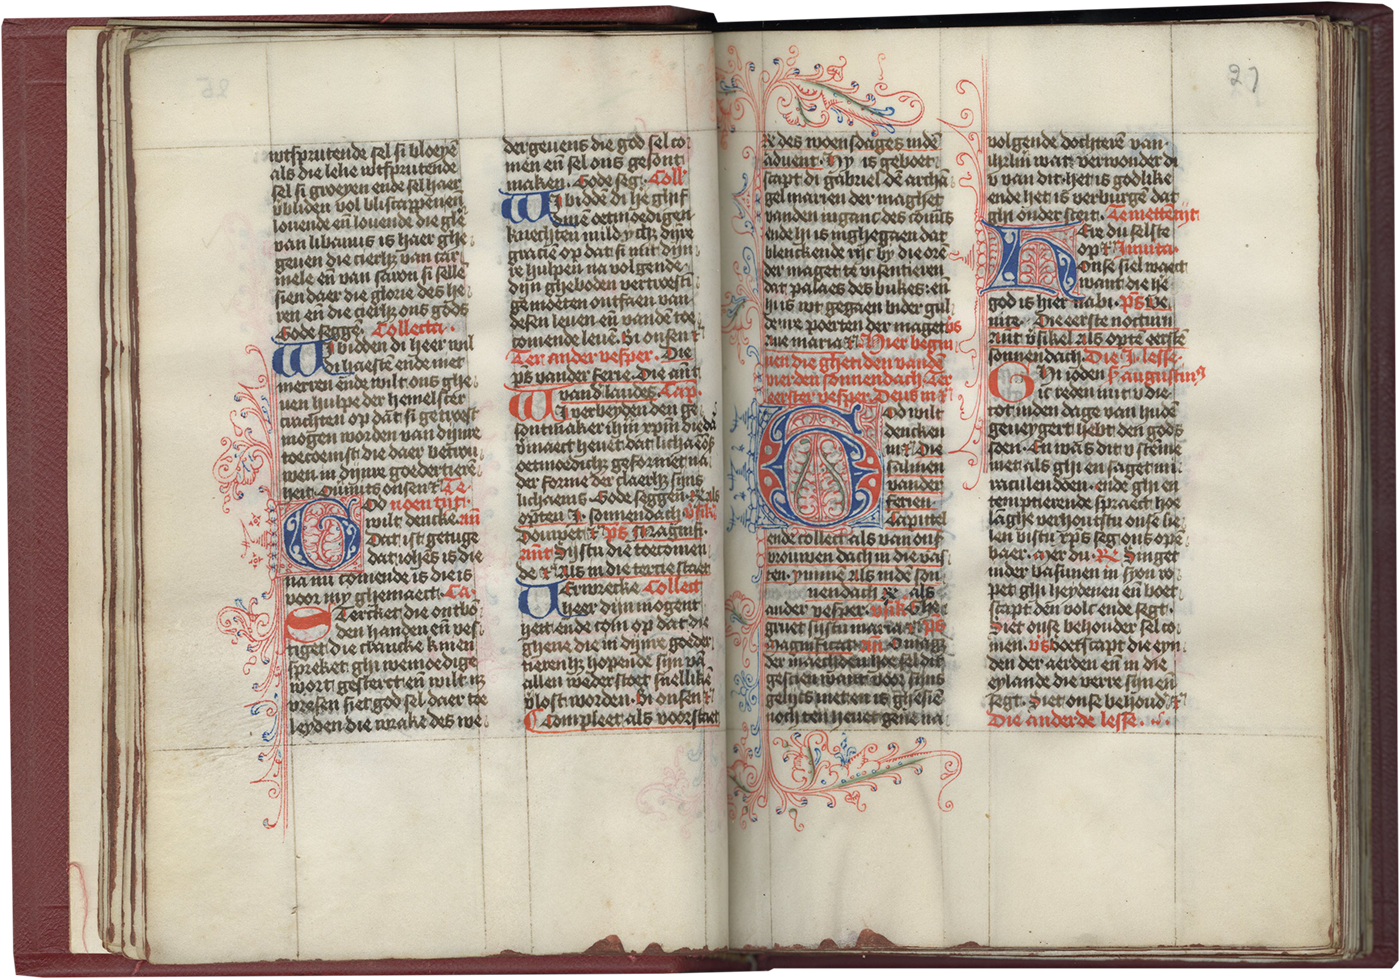 wtsprutende sel si bloeyē
als die lelie wtsprutende
sel si groeyen ende sel haer
vbliden vol bliscappenen
louende die
van libanus is haer ghe
geuen die van car
mele eñ van saron si selle
sien daer die glorie des he
ren eñ die gods
Gode segge. Collecta.
Wi bidden di heer wil
haeste ende niet
merren ende wilt ons ghe
uen hulpe der hemelscer
crachten op dat si getroest
mogen worden van dijnre
toecoemst die daer betrou
wen in dijnre goedertiere
heit.
God
wilt dencke añ
Dat ist getuge
dat iohēs is die
na mi comende is die is
voer my ghemaect. Ca.
Stercket die ontbo
den handen eñ ves
tiget die crancke knien
spreket ghi wemoedige
wort gesterct eñ wilt n
vresen siet god sel daer toe
leyden die wrake des we
dergeuens die god sel co
men eñ sel ons gesont
maken. Gode seg. Coll
Wi biddē di
oetmoedigen
knechten dijnre
gracie op dat si mit dijnre
hulpen na volgende
dijn gheboden vertroest
gemoeten ontfaen van
desen leuen eñ vandē toe
comende leuē. Bi onsen
Ter ander vesper. Die
ps vander ferie. Die ant
vand laudes. Cap.
Wi verbeyden den ge
sontmaker ihm xpm die da
vmaect heuet dat
oetmoedich geformet na
der forme der claerh sijns
lichaems. Gode seggen. als
opten sonnendach
ps Magnifi.
ant Sijstu die toecomen
de Als in die tercie staet
Verwecke Collect
heer dijn mogent
heit ende com op dat die
ghene die in dijnre goeder
tierenh hopende sijn vā
allen wederstoet snellike
vlost worden. Bi onsen
Compleet als voerstaet
27
des woensdages inde
aduent. Hy is geboet
scapt bi gabriel den archā
gel marien der maghet
vanden inganc des conīcs
ende hi is inghegaen dat
blenckende rijc by die ore
der maget te visentieren
dat palaes des bukes. eñ
hi is wt gegaen bider gul
denre poerten der maget vs
Aue maria Hier begin
nen die ghetiden vandē
vierden sonnendach. Ter
eerster vesper. Deus in
God wilt
dencken
in Die
salmen
vander
ferien.
Capittel
ende collect als van ons
vrouwen dach in die vas
ten. ymnē Als inde son
nendach als
ander vesper.
gruet sijstu maria ps
magnificat an. O maget
der maechden hoe sel dit
gescien want voer sijns
gelijcs niet en is ghesiē
noch ten heuet gene na
volgende dochterē van
ihrlm wat verwonder di
v van dit. het is godlike
ende het is verburgē dat
ghi onder siet. Te mettentijt
Heere du selste
op Inuita.
Onse siel waect
want die he
god is hier nabi. ps Ve
nite. Die eerste nocturn
Ant vsikel Als opte eerste
sonnendach. Die .I. lesse.
O Ghi ioden s augustinus
ic reden mit v die
tot inden dage van hudē
geueygert hebt den gods
soen. En was dit v stēme
niet als ghi en saget mi
raculen doen. ende ghi en
temptierende spraect hoe
laghe verhoutstu onse sie
len bistu xps seg ons ope
baer. mer du. Re Singet
inder basunen in syon ro
pet ghi heydenen eñ boet
scapt den volc ende segt.
Siet onse behouder sel co
men. vs boetscapt die eyn
den der aerden eñ in die
eylande die verre sijn eñ
segt. Siet onse behoud
Die anderde lesse.